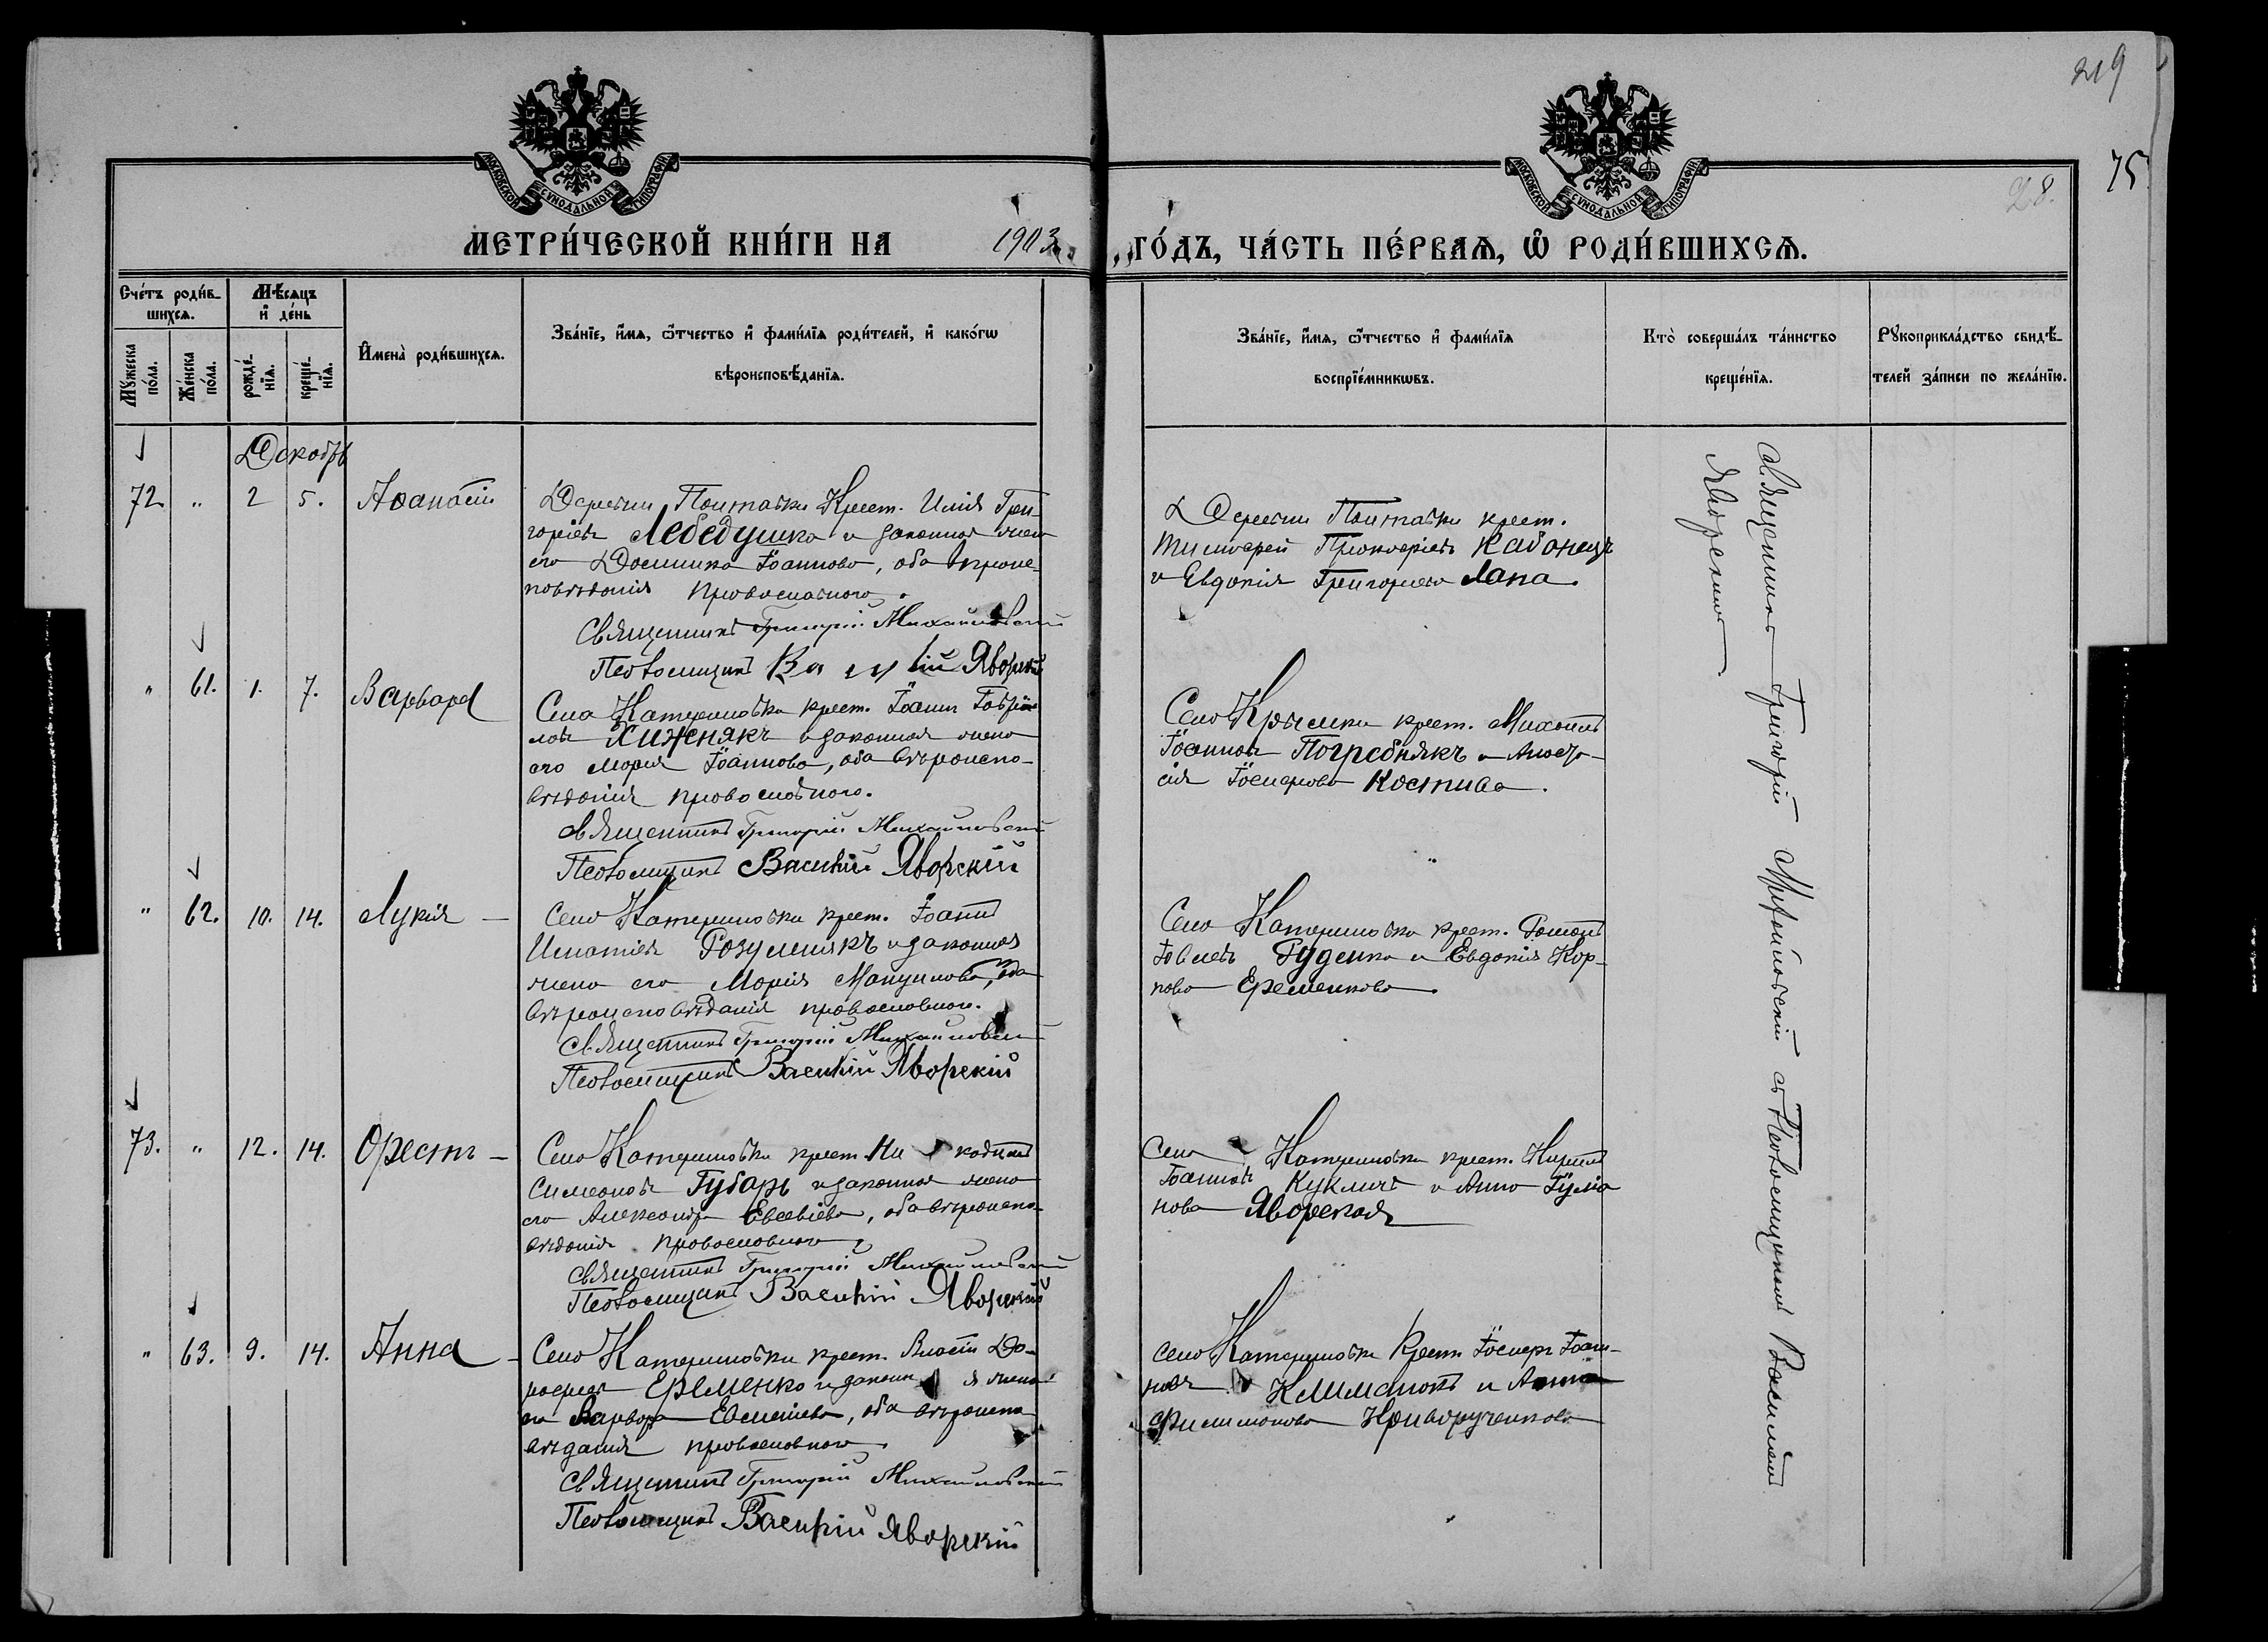 219
75
28.
МОСКОВСКОЙ СѴНОДАЛЬНОЙ ТИПОГРАФІИ
МОСКОВСКОЙ СѴНОДАЛЬНОЙ ТИПОГРАФІИ
МЕТРИ́ЧЕСКОЙ КНИ́ГИ НА 1903
ГО́ДЪ, ЧА́СТЬ ПЕ́РВАѦ, Ѡ РОДИ́ВШИХСѦ.
Сче́тъ роди́в-
шихсѧ.
Мѣ́сѧцъ
и҆ де́нь
Мꙋ́жеска
по́ла.
Же́нска
по́ла.
рожде́-
нїѧ.
креще́-
нїѧ.
И҆мена̀ роди́вшихсѧ.
Зва́нїе, и҆́мѧ, ѻ҆́тчество и҆ фами́лїѧ роди́телей, и҆ како́гѡ
вѣроисповѣ́данїѧ.
Зва́нїе, и҆́мѧ, ѻ҆́тчество и҆ фами́лїѧ
воспрїе́мникѡвъ.
Кто̀ соверша́лъ та́инство
креще́нїѧ.
Рꙋкоприкла́дство свидѣ́-
телей за́писи по жела́нїю.
Декабрь
72. " 2 5. Аѳанасій
Деревни Полтавки Крест. Илія Гри-
горіевъ Лебедушка и законная жена
его Домника Іоаннова, оба вѣроис-
повѣданія православного.
Священникъ Григорій Михайловскій
Псаломщикъ Василій Яворскій
Деревни Полтавки крест.
Тимоѳей Прокофіевъ Кабанецъ
и Евдокія Григорьева Лапа.
" 61. 1. 7. Варвара
Села Катериновки крест. Іоаннъ Гаврі-
ловъ Хижнякъ и законная жена
его Марія Іоаннова, оба вѣроиспо-
вѣданія православного.
Священникъ Григорій Михайловскій
Псаломщикъ Василій Яворскій
Село Крымки крест. Михаилъ
Іоанновъ Погребнякъ и Анаста-
сія Іосифова Костива.
" 62. 10. 14. Лукія
Село Катериновки крест. Іоаннъ
Игнатіевъ Розумнякъ и законная
жена его Марія Мануилова, оба
вѣроисповѣданія православного.
Священникъ Григорій Михайловскій
Псаломщикъ Василій Яворскій
Село Катериновки крест. Романъ
Руденко и Евдокія Кар-
пова Еременкова
73. " 12. 14. Орестъ
Село Катериновки крест. Никодимъ
Симеоновъ Губарь и законная жена
его Александра Евсевіева, оба вѣроиспо-
вѣданія православного
Священникъ Григорій Михайловскій
Псаломщикъ Василій Яворскій
Село Катериновки крест. Кириллъ
Іоанновъ Кукличъ и Анна Іуліа-
нова Яворская
" 63. 9. 14. Анна
Село Катериновки крест. Власій До-
роѳеевъ Еременко и законная жена
его Варвара, оба вѣроиспо-
вѣданія православного
Священникъ Григорій Михайловскій
Псаломщикъ Василій Яворскій
Село Катериновки Крест. Іосифъ Іоан-
новъ Климанокъ и Анна
Филимонова Криворученкова
Священникъ Григорій Михайловскій съ Псаломщикомъ Василіемъ
Яворскимъ